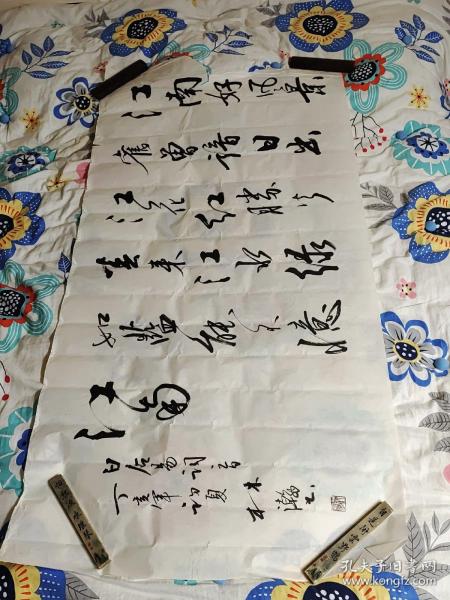 江南好风景
舊曾諳日出
江花红勝火
春来江水绿
如藍能不憶
江南
白居易词
丁亥年初夏
孔夫子旧书网
kongfz.com